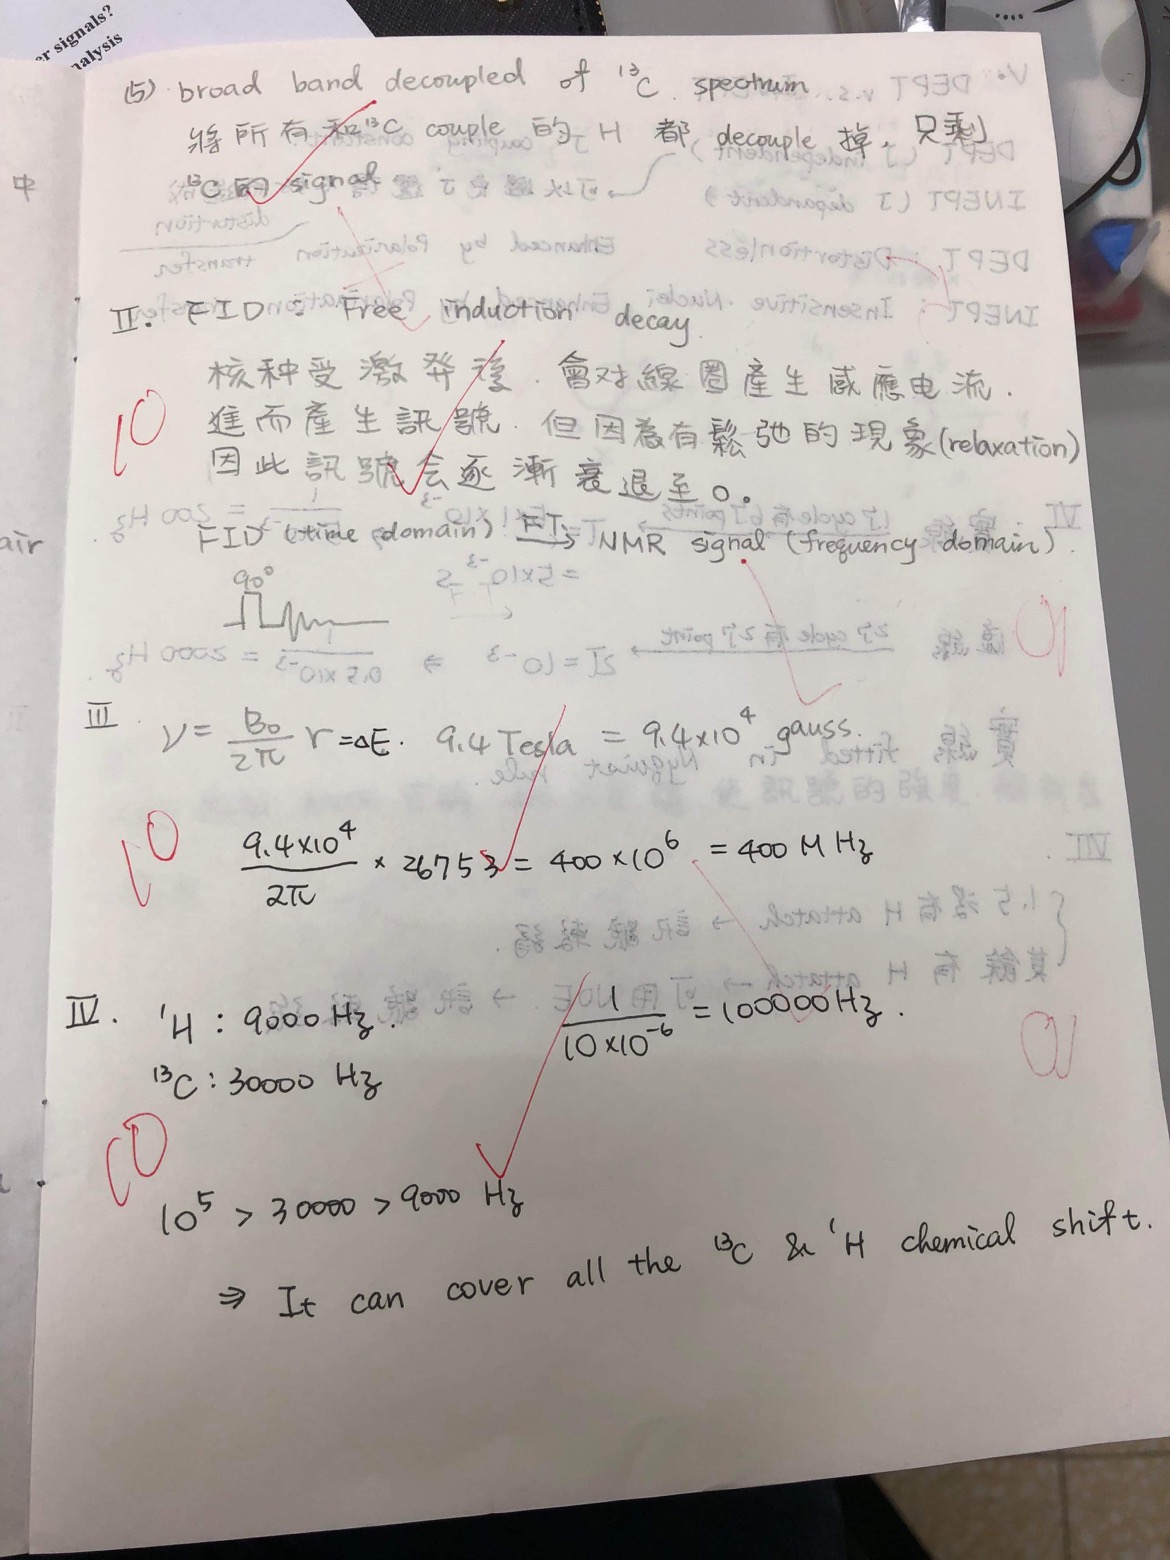 er signals?
nalysis
中
air
(5) broad band decoupled of ¹³C spectrum
將所有和¹³C couple 的 H 都 decouple 掉, 只剩
¹³C 的 signal
II. FID : Free induction decay
核种受激発後. 會对線圈產生感應电流.
進而產生訊號. 但因為有鬆弛的現象(relaxation)
因此訊號会逐漸衰退至0。
10
FID (time domain) FT→ NMR signal (frequency domain).
90°
III ν = B₀/2π r = ΔE. 9.4 Tesla = 9.4×10⁴ gauss.
9.4×10⁴/2π × 26753 = 400×10⁶ = 400 MHz
10
IV. ¹H : 9000 Hz. 1/10×10⁻⁶ = 100000 Hz.
¹³C : 30000 Hz
10
10⁵ > 30000 > 9000 Hz
⇒ It can cover all the ¹³C & ¹H chemical shift.